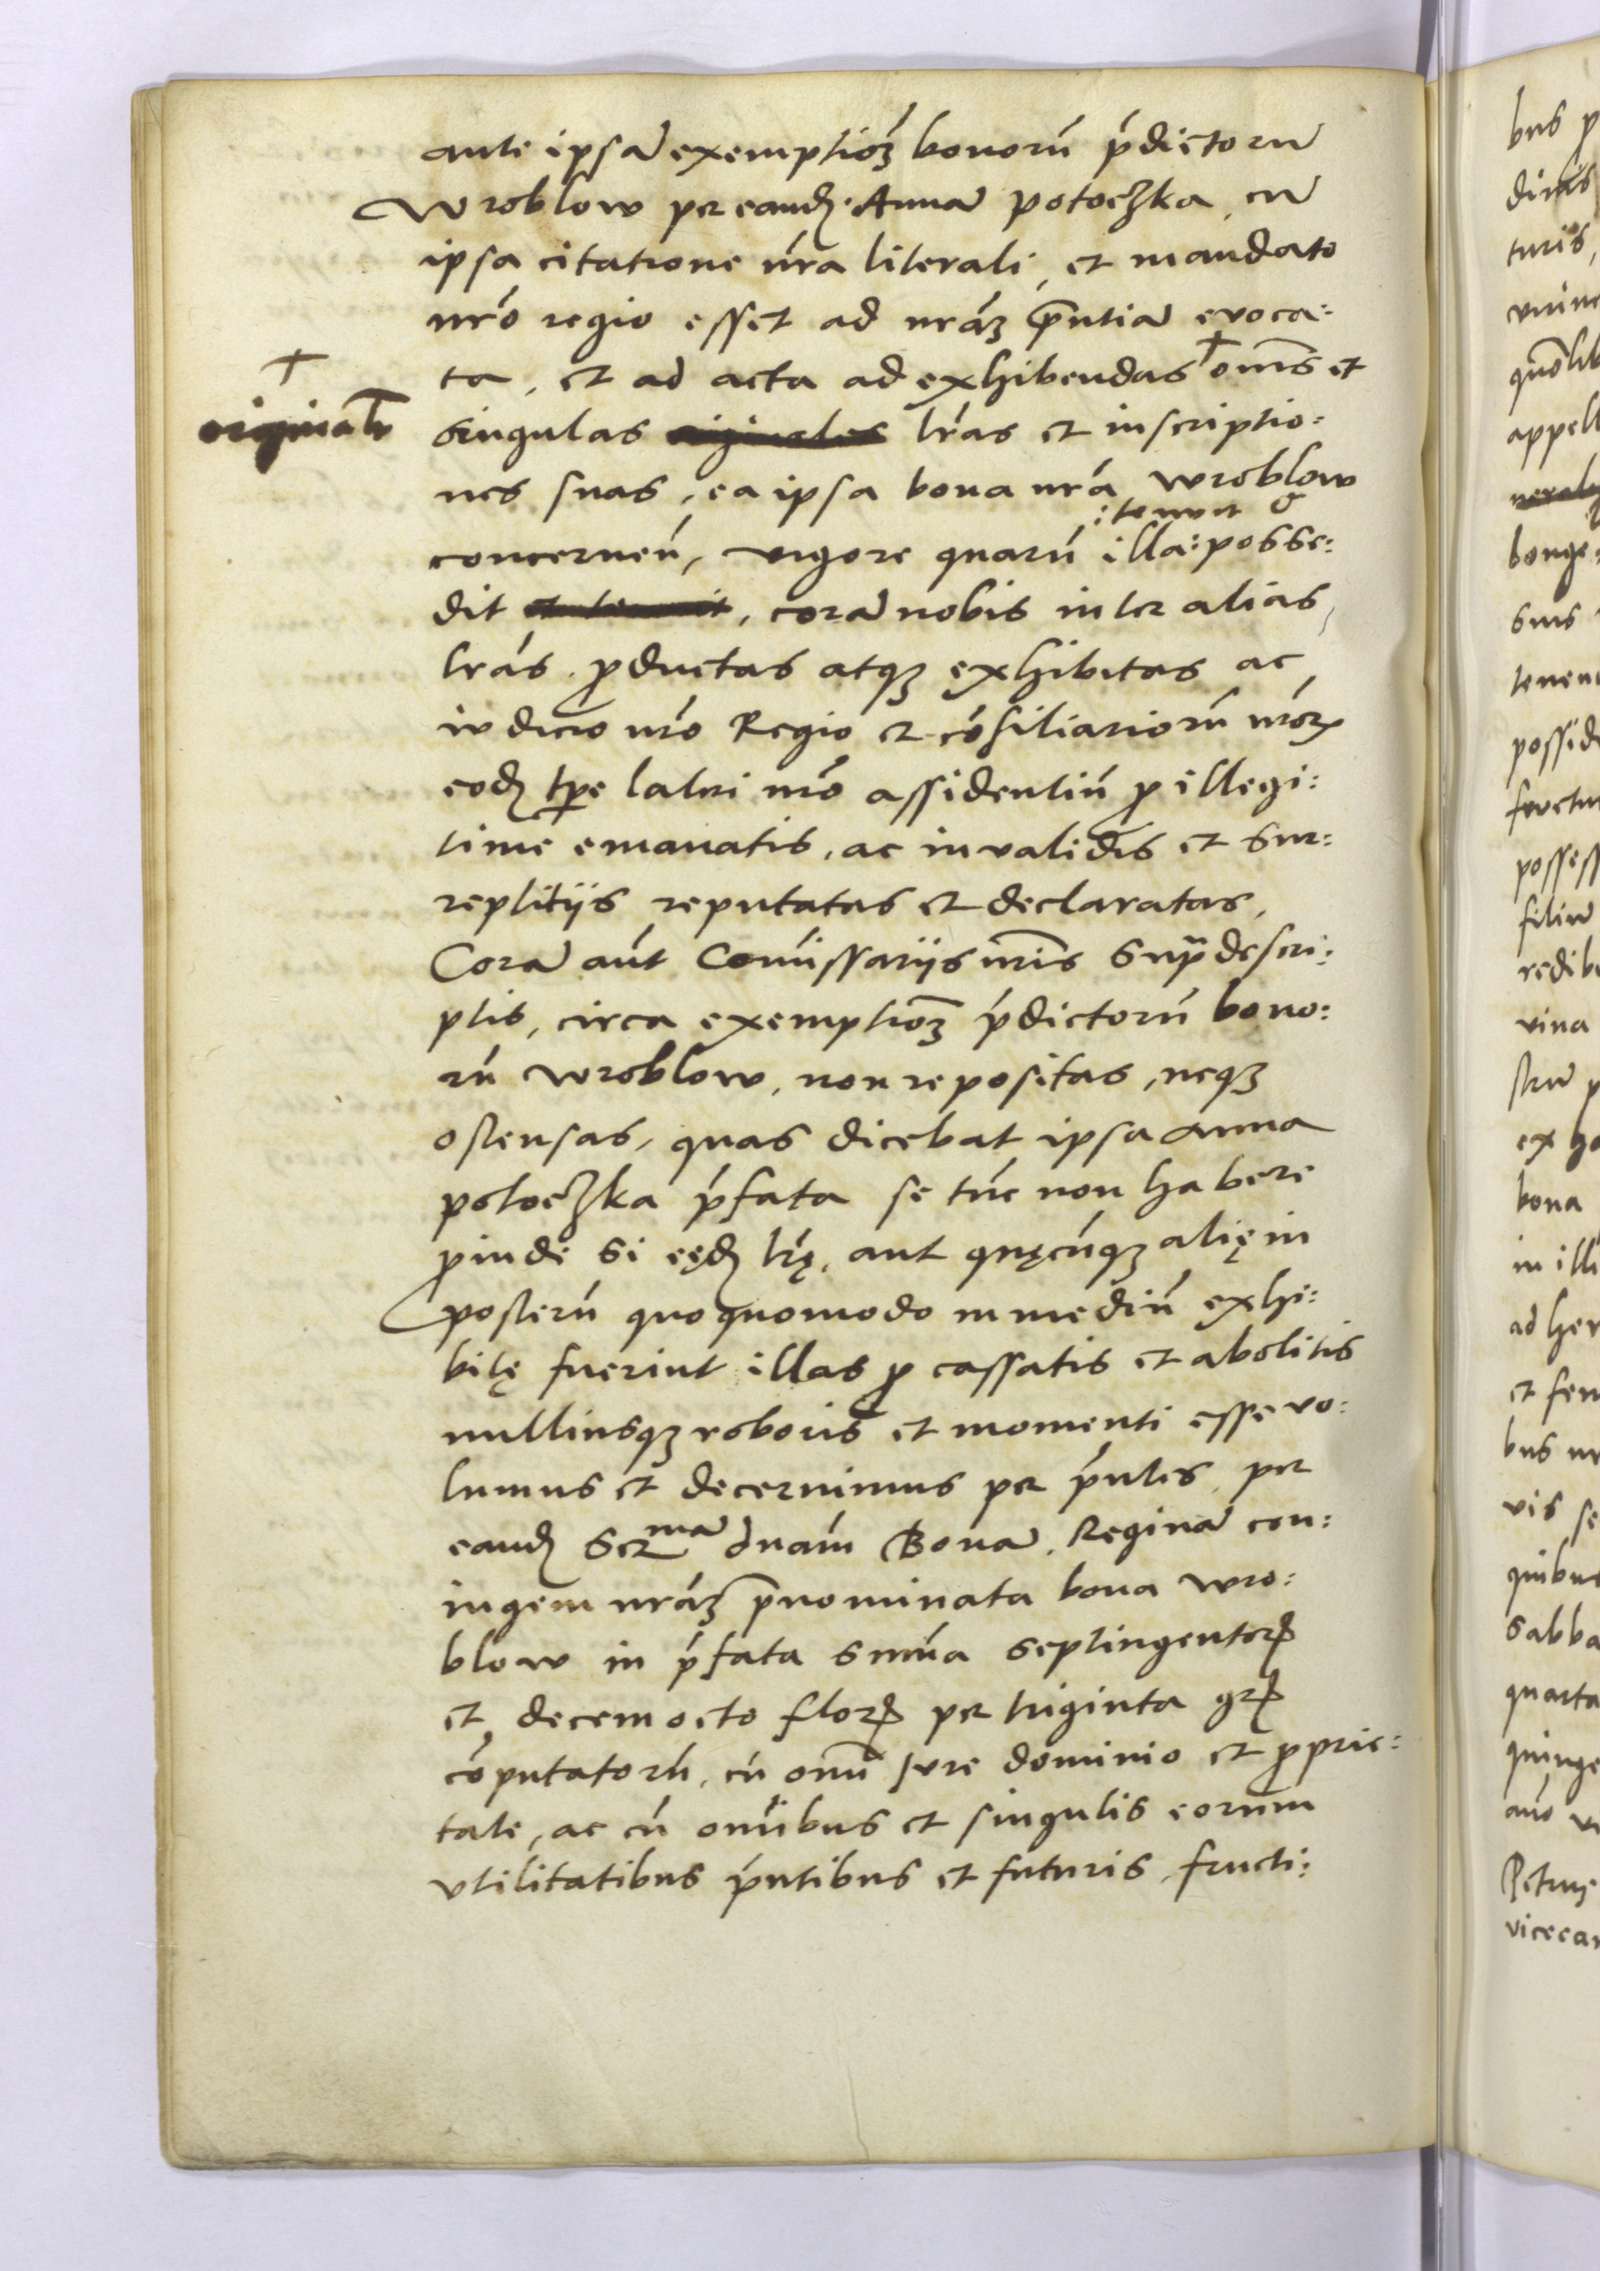 ante ipsā exemptiōȝ bonorū p̄dictorū
Wroblow per eandȝ Annā potoczka, cū
ipsa citatione n̄ra literali, et mandato
nr̄o regio esset ad nrāȝ p̄ntiā evoca:
ta, et ad acta ad exhibendas + om̄s et
+
originalr̄
singulas originales lr̄as et inscriptio:
nes suas, ea ipsa bona nr̄a wroblow
:tenuit &
concernen̄, vigore quarū illa: posse:
dit et tenuit, corā nobis inter alias
lrās ꝓductas atqȝ exhibitas ac
iudicio nr̄o Regio et cōsiliariorū nr̄oꝝ
eodȝ tp̄e lateri nr̄o assidentiū ꝓ illegi:
time emanatis, ac invalidis et sur:
reptitijs reputatas et declaratas,
Corā aūt Com̄issarijs nr̄is sup̄descri:
ptis, circa exemptiōȝ p̄dictorū bono:
rū wroblow, non repositas, neqȝ
ostensas, quas dicebat ipsa Anna
potoczka p̄fata se tūc non habere
ꝓinde si eędȝ lr̄ę, aut quęcūqȝ alię in
posterū quoquomodo in mediū exhi:
bitę fuerint illas ꝓ cassatis et abolitis
nulliusqȝ roboris et momenti esse vo:
lumus et decernimus per p̄ntes, per
eandȝ Serᵐᵃ̄ dnām Bonā Reginā con:
iugem nrāȝ p̄nominata bona wro:
blow in p̄fata sum̄a septingentoꝝ
et decem octo floꝝ per triginta gꝝ
cōputatorū, cū om̄i Iure dominio et ꝓprie:
tate, ac cū om̄ibus et singulis eorum
vtilitatibus p̄ntibus et futuris, fructi:
bus ꝑ
turis,
appell
bonge:
suis
possid
possess
filiū
redib
vina
ex
bona
in illi
ad her
et fem
vis se
quibus
sabba
quarta
quinge
Petrus
vicecan